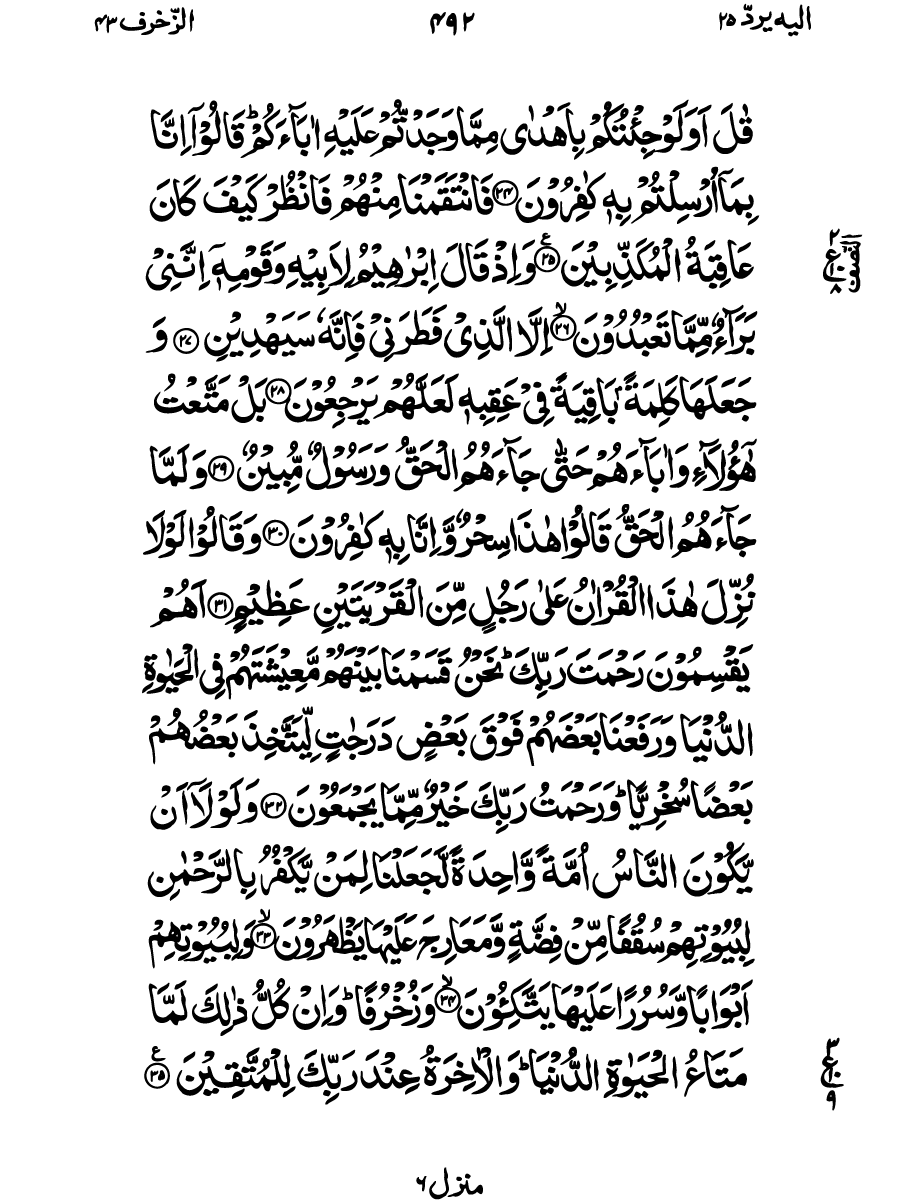 الیه یردّ ۲۵
۴۹۲
الزّخرف ۴۳
قٰلَ اَوَلَوْ جِئْتُكُمْ بِاَهْدٰى مِمَّا وَجَدْتُّمْ عَلَیْهِ اٰبَآءَكُمْ ؕ قَالُوْۤا اِنَّا
بِمَاۤ اُرْسِلْتُمْ بِهٖ كٰفِرُوْنَ ۲۴ فَانْتَقَمْنَا مِنْهُمْ فَانْظُرْ كَیْفَ كَانَ
عَاقِبَةُ الْمُكَذِّبِیْنَ ۲۵ ع وَ اِذْ قَالَ اِبْرٰهِیْمُ لِاَبِیْهِ وَ قَوْمِهٖۤ اِنَّنِیْ
النصف
۲ ع ۱۰ ۸
بَرَآءٌ مِّمَّا تَعْبُدُوْنَ ۲۶ ۙ اِلَّا الَّذِیْ فَطَرَنِیْ فَاِنَّهٗ سَیَهْدِیْنِ ۲۷ وَ
جَعَلَهَا كَلِمَةًۢ بَاقِیَةً فِیْ عَقِبِهٖ لَعَلَّهُمْ یَرْجِعُوْنَ ۲۸ بَلْ مَتَّعْتُ
هٰۤؤُلَآءِ وَ اٰبَآءَهُمْ حَتّٰى جَآءَهُمُ الْحَقُّ وَ رَسُوْلٌ مُّبِیْنٌ ۲۹ وَ لَمَّا
جَآءَهُمُ الْحَقُّ قَالُوْا هٰذَا سِحْرٌ وَّ اِنَّا بِهٖ كٰفِرُوْنَ ۳۰ وَ قَالُوْا لَوْ لَا
نُزِّلَ هٰذَا الْقُرْاٰنُ عَلٰى رَجُلٍ مِّنَ الْقَرْیَتَیْنِ عَظِیْمٍ ۳۱ اَهُمْ
یَقْسِمُوْنَ رَحْمَتَ رَبِّكَ ؕ نَحْنُ قَسَمْنَا بَیْنَهُمْ مَّعِیْشَتَهُمْ فِی الْحَیٰوةِ
الدُّنْیَا وَ رَفَعْنَا بَعْضَهُمْ فَوْقَ بَعْضٍ دَرَجٰتٍ لِّیَتَّخِذَ بَعْضُهُمْ
بَعْضًا سُخْرِیًّا ؕ وَ رَحْمَتُ رَبِّكَ خَیْرٌ مِّمَّا یَجْمَعُوْنَ ۳۲ وَ لَوْ لَاۤ اَنْ
یَّكُوْنَ النَّاسُ اُمَّةً وَّاحِدَةً لَّجَعَلْنَا لِمَنْ یَّكْفُرُ بِالرَّحْمٰنِ
لِبُیُوْتِهِمْ سُقُفًا مِّنْ فِضَّةٍ وَّ مَعَارِجَ عَلَیْهَا یَظْهَرُوْنَ ۳۳ ۙ وَ لِبُیُوْتِهِمْ
اَبْوَابًا وَّ سُرُرًا عَلَیْهَا یَتَّكِـُٔوْنَ ۳۴ ۙ وَ زُخْرُفًا ؕ وَ اِنْ كُلُّ ذٰلِكَ لَمَّا
مَتَاعُ الْحَیٰوةِ الدُّنْیَا ؕ وَ الْاٰخِرَةُ عِنْدَ رَبِّكَ لِلْمُتَّقِیْنَ ۳۵ ع
۳ ع ۱۰ ۹
منزل ۶